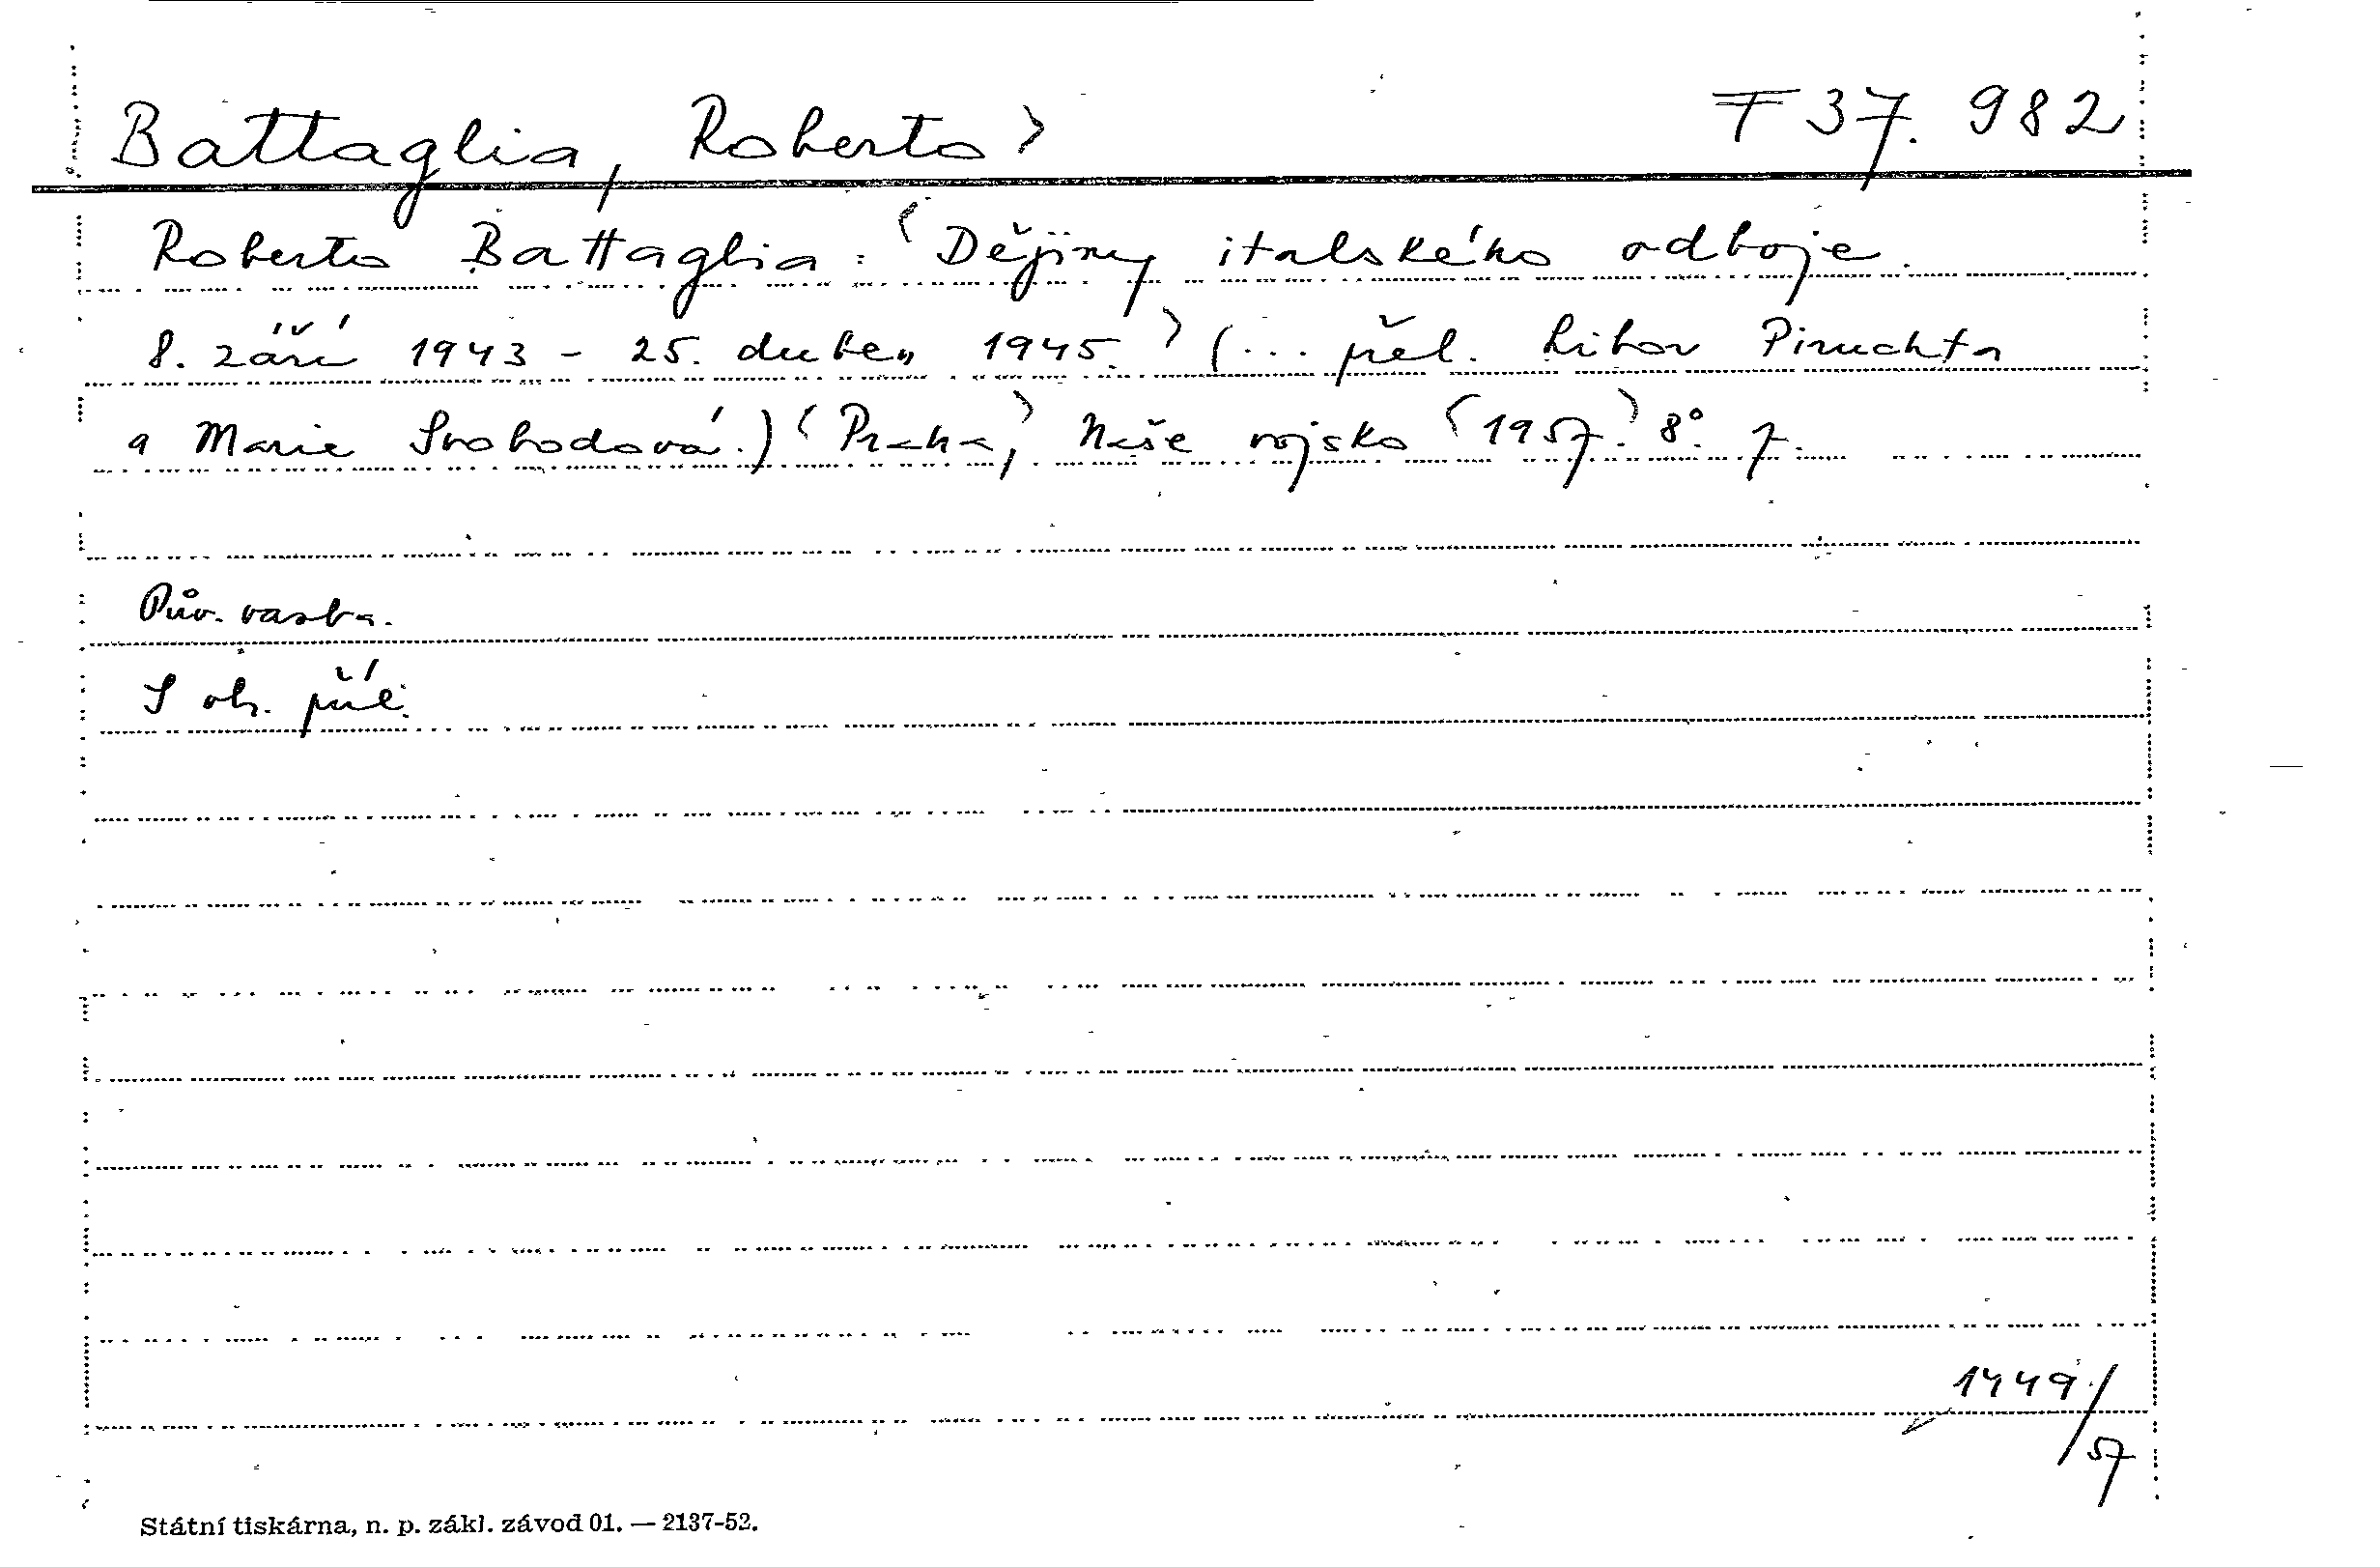 Battaglia, Roberto> F 37.982
Roberto Battaglia: <Dějiny italského odboje.
8. září 1943 - 25. duben 1945.> (... přel. Libor Piruchta
a Marie Svobodová.) <Praha,> Naše vojsko <1957.> 8°. 7.
Pův. vazba.
S obr. příl.
1449/57
Státní tiskárna, n. p. zákl. závod 01. — 2137-52.